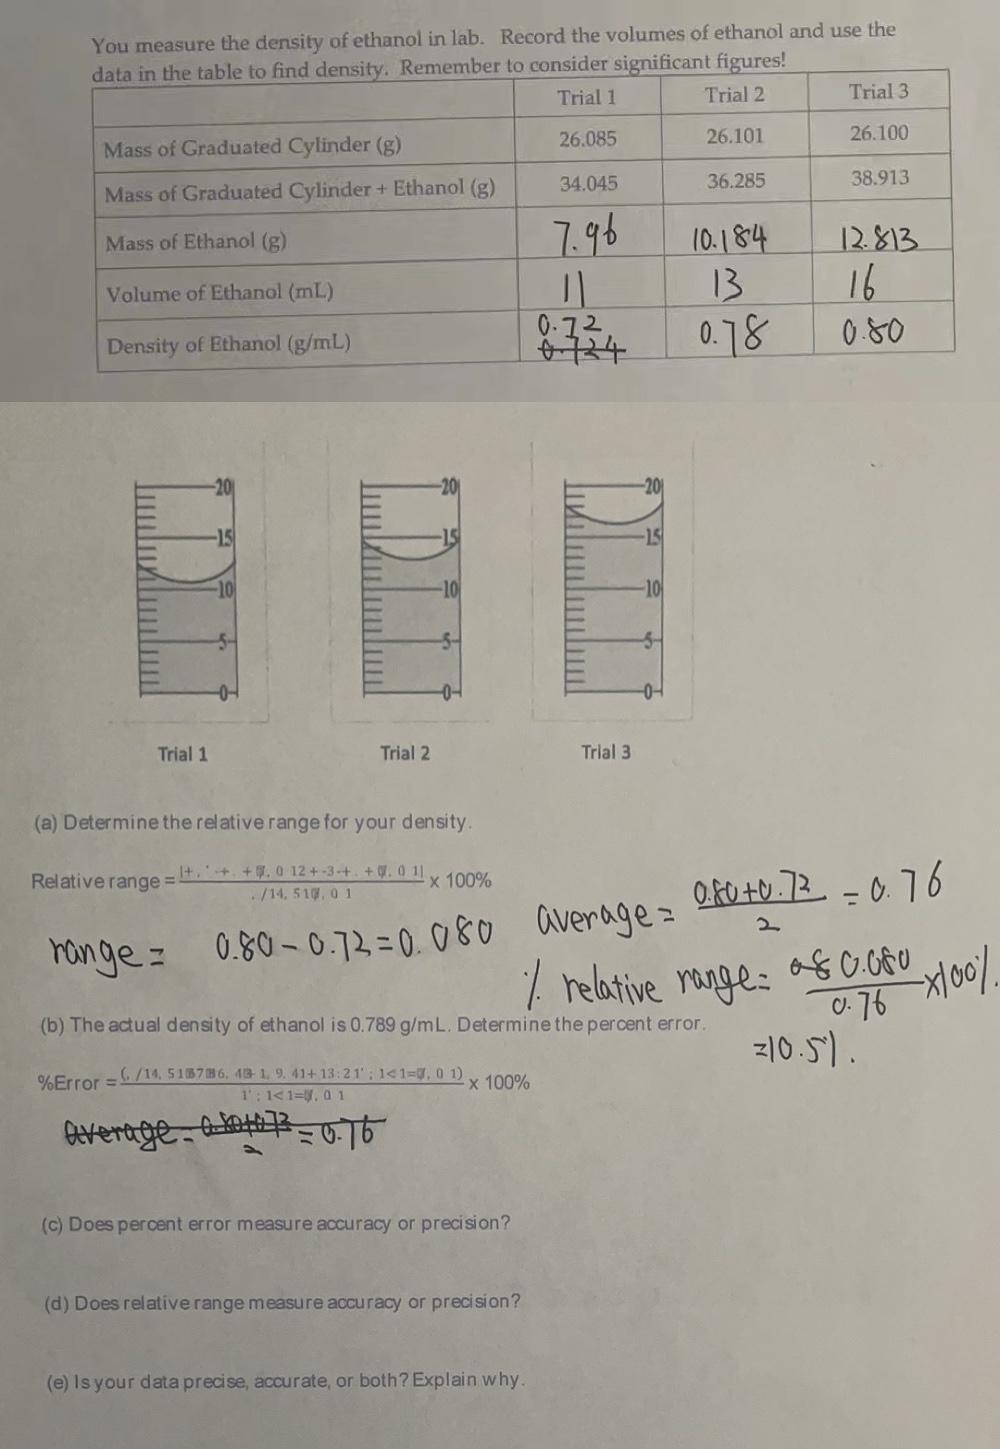 You measure the density of ethanol in lab. Record the volumes of ethanol and use the
data in the table to find density. Remember to consider significant figures!
Trial 1 Trial 2 Trial 3
Mass of Graduated Cylinder (g) 26.085 26.101 26.100
Mass of Graduated Cylinder + Ethanol (g) 34.045 36.285 38.913
Mass of Ethanol (g) 7.96 10.184 12.813
Volume of Ethanol (mL) 11 13 16
Density of Ethanol (g/mL) 0.72 0.78 0.80
0.724
20 20 20
15 15 15
10 10 10
5 5 5
0 0 0
Trial 1 Trial 2 Trial 3
(a) Determine the relative range for your density.
Relative range = x 100%
average = 0.80+0.72 / 2 = 0.76
range = 0.80 - 0.72 = 0.080
% relative range = 0.080 / 0.76 x100%
=10.5%.
(b) The actual density of ethanol is 0.789 g/mL. Determine the percent error.
%Error = x 100%
average = 0.80+0.72 / 2 = 0.76
(c) Does percent error measure accuracy or precision?
(d) Does relative range measure accuracy or precision?
(e) Is your data precise, accurate, or both? Explain why.